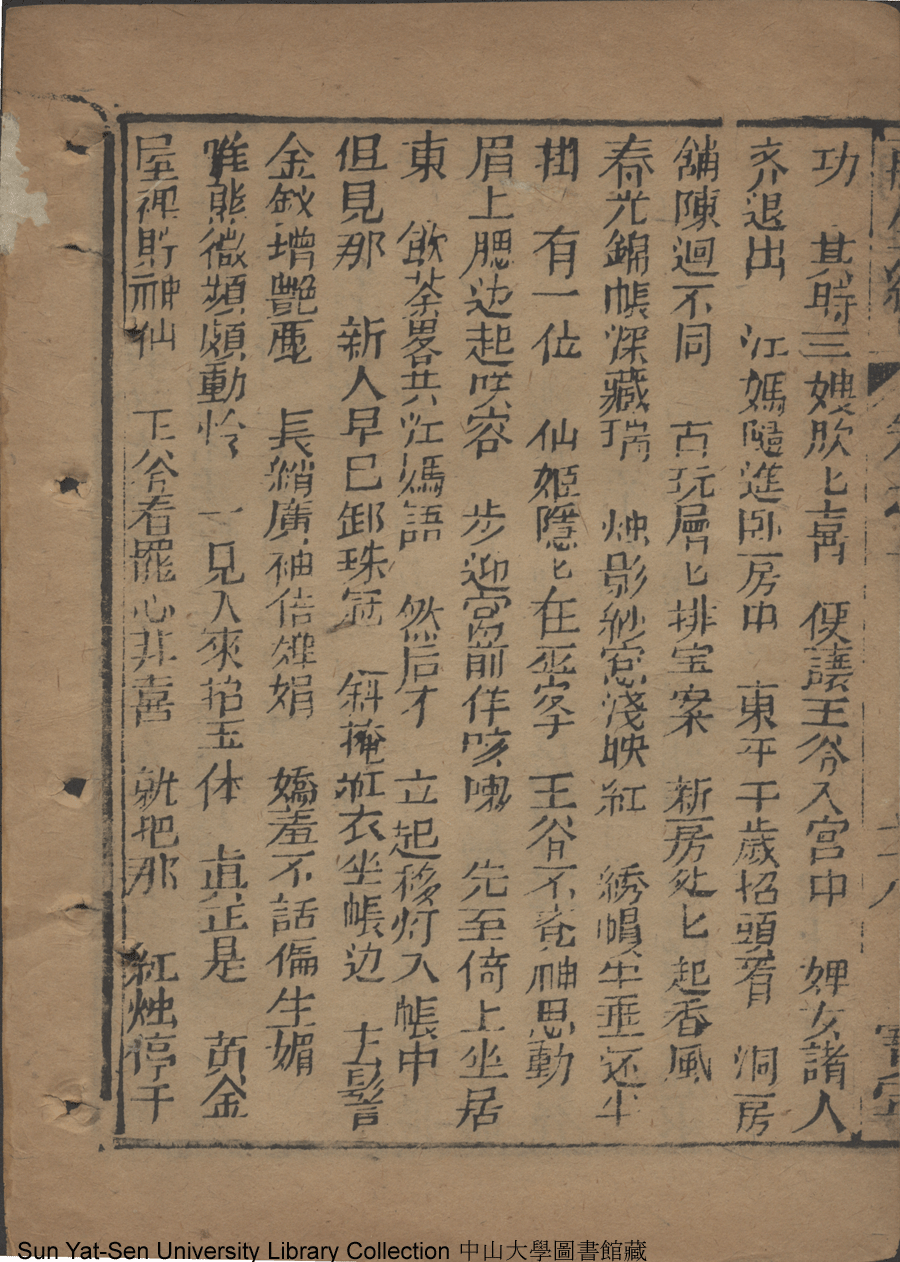 功　其時三嫂欣匕喜　便讓王爷入宮中　婢女諸人
齐退出　江媽隨進卧房中　東平千歲招頭看　洞房
舖陳迴不同　古玩層匕排宝案　新房处匕起香風
春光錦帳深藏瑞　烛影紗窓淺映紅　绣幌半垂还半
掛　有一位　仙姬隱匕在巫峯　王爷不覺神思動
眉上腮边起咲容　步迎窓前佯咳嗽　先至倚上坐居
東　飲茶畧共江媽語　然后才　立起移灯入帳中
但見那　新人早已卸珠冠　斜掩紅衣坐帳边　髻
金釵增艷　長綃廣袖倍婵娟　嬌羞不話偏生媚
惟態微頻頗動怜　一見人來招玉体　真正是　黄金
屋裡貯神仙　王爷看罷心非喜　就把那　紅烛停于
Sun Yat-Sen University Library Collection 中山大學圖書館藏